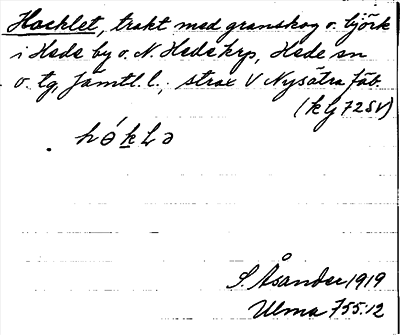 Hocklet, trakt med granskog o. björk
i Hede by o. N. Hedekrp, Hede sn
o. tg, Jämtl. l.; strax V Nysätra fäb.
(kbl 72SV)
S. Åsander 1919
Ulma 755:12